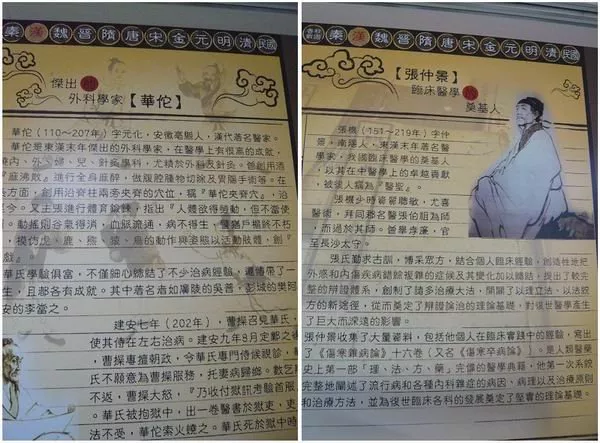 秦漢魏晉隋唐宋金元明清民國
傑出
外科學家【華佗】
華佗(110~207年)字元化,安徽亳縣人,漢代著名醫家。
華佗是東漢末年傑出的外科學家,在醫學上有很高的成就,
內、外、婦、兒、針灸學科,尤精於外科及針灸。曾創用酒
麻沸散』進行全身麻醉,做腹腔腫物切除及胃腸手術。在
方面,創用沿脊柱兩旁夾脊的穴位,稱『華佗夾脊穴』,沿
至今。又主張進行體育鍛鍊,指出『人體欲得勞動,但不當使
。動搖則谷氣得消,血脈流通,病不得生,譬猶戶樞終不朽
,模仿虎、鹿、熊、猿、鳥的動作與姿態以活動肢體,創『
戲』。
華氏學驗俱富,不僅細心總結了不少治病經驗,還備帶了一
生,且都各有成就。其中著名者如廣陵的吳普,彭城的樊阿
安的李當之。
建安七年(202年),曹操召見華氏,
使其侍在左右治病。建安九年8月定鄴之
,曹操專擅朝政,令華氏專門侍候親診,華
氏不願意為曹操服務,托妻病歸鄉。數乞
不返,曹操大怒,『乃收付獄訊考驗首服
。華氏被拘獄中,出一卷醫書於獄吏,吏
法不受,華佗索火燒之。華氏死於獄中時
秦漢魏晉隋唐宋金元明清民國
【張仲景】
臨床醫學
奠基人
張機(151~219年)字仲
景,南陽人,東漢末年著名醫
學家,我國臨床醫學的奠基人
,以其在中醫學上的卓越貢獻
,被後人稱為『醫聖』。
張機少時資質聰敏,尤喜
醫術,拜同郡名醫張伯祖為師
,而過於其師。曾舉孝廉,官
至長沙太守。
張氏勤求古訓,博采眾方,結合個人臨床經驗,創造性地把
外感和內傷疾病錯綜複雜的症候及其變化加以總結,提出了較完
整的辯證體系,創制了諸多治療大法,開闢了以理立法,以法統
方的新途徑,從而奠定了辯證論治的理論基礎,對後世醫學產生
了巨大而深遠的影響。
張仲景收集了大量資料,包括他個人在臨床實踐中的經驗,寫出
了《傷寒雜病論》十六卷(又名《傷寒卒病論》)。是人類醫藥
史上第一部「理、法、方、藥」完備的醫學典籍,他第一次系統
完整地闡述了流行病和各種內科雜症的病因,病理以及治療原則
和治療方法,並為後世臨床各科的發展奠定了堅實的理論基礎。